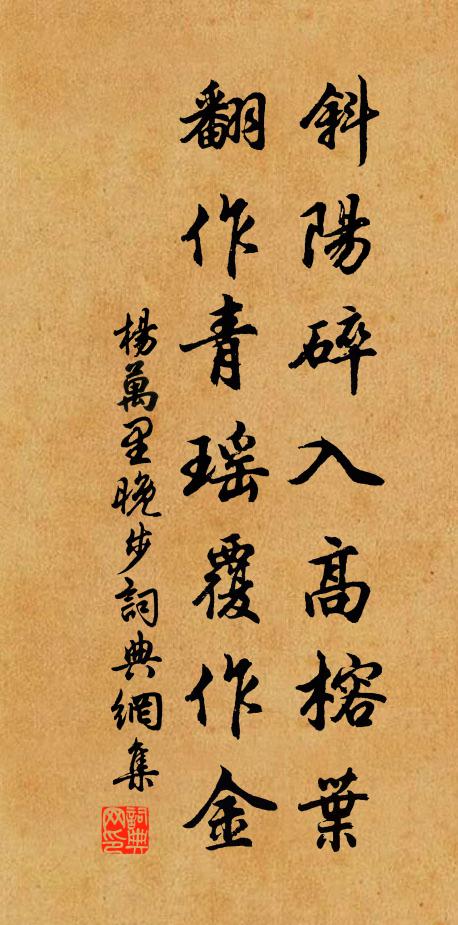 斜陽碎入高榕葉
翻作青瑶覆作金
楊萬里晚步詞典網集
詞典网印